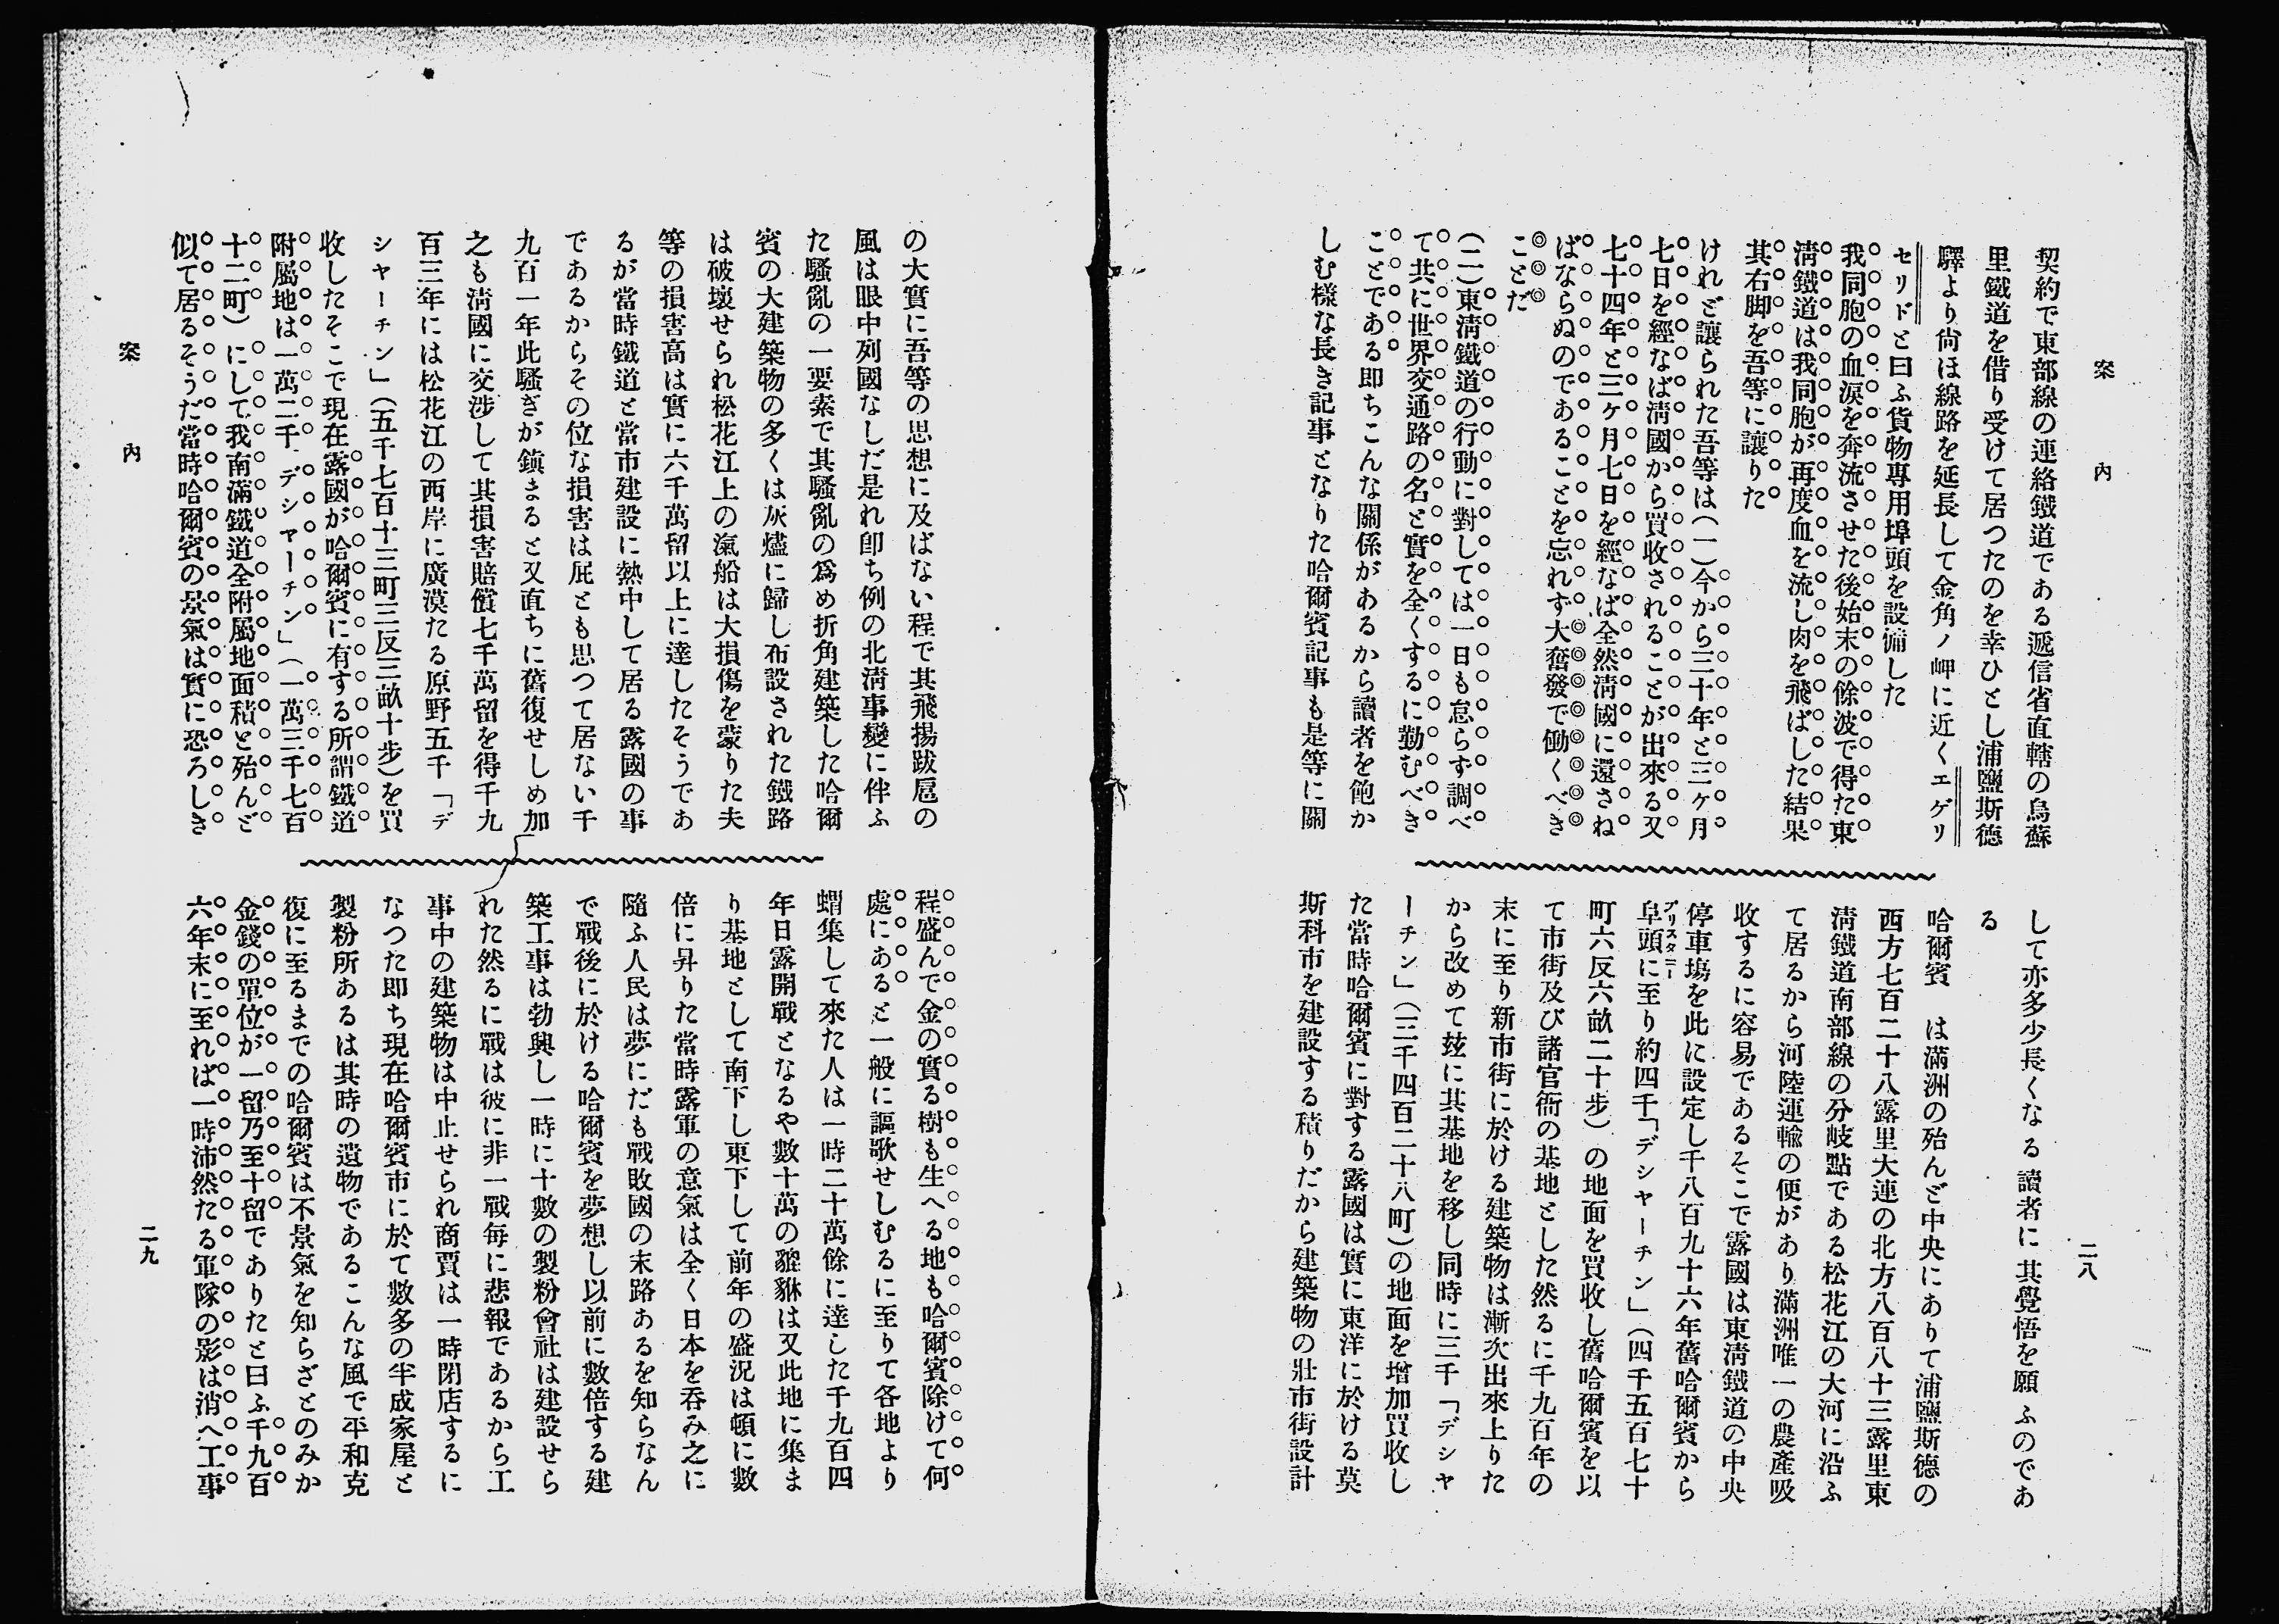 案內
二八
契約で東部線の連絡鐵道である遞信省直轄の烏蘇
里鐵道を借り受けて居つたのを幸ひとし浦鹽斯德
驛より尙ほ線路を延長して金角ノ岬に近くエゲリ
セリドと曰ふ貨物專用埠頭を設備した
我同胞の血淚を奔流させた後始末の餘波で得た東
淸鐵道は我同胞が再度血を流し肉を飛ばした結果
其右脚を吾等に讓りた
けれど讓られた吾等は(一)今から三十年と三ヶ月
七日を經なば淸國から買收されることが出來る又
七十四年と三ヶ月七日を經なば全然淸國に還さね
ばならぬのであることを忘れず大奮發で働くべき
ことだ
(二)東淸鐵道の行動に對しては一日も怠らず調べ
て共に世界交通路の名と實を全くするに勤むべき
ことである卽ちこんな關係があるから讀者を飽か
しむ樣な長き記事となりた哈爾賓記事も是等に關
して亦多少長くなる讀者に其覺悟を願ふのであ
る
哈爾賓 は滿洲の殆んど中央にありて浦鹽斯德の
西方七百二十八露里大連の北方八百八十三露里東
淸鐵道南部線の分岐點である松花江の大河に沿ふ
て居るから河陸運輸の便があり滿洲唯一の農產吸
收するに容易であるそこで露國は東淸鐵道の中央
停車塲を此に設定し千八百九十六年舊哈爾賓から
阜頭に至り約四千「デシャーチン」(四千五百七十
プリスターニ
町六反六畝二十步)の地面を買收し舊哈爾賓を以
て市街及び諸官衙の基地とした然るに千九百年の
末に至り新市街に於ける建築物は漸次出來上りた
から改めて玆に其基地を移し同時に三千「デシャ
ーチン」(三千四百二十八町)の地面を增加買收し
た當時哈爾賓に對する露國は實に東洋に於ける莫
斯科市を建設する積りだから建築物の壯市街設計
の大實に吾等の思想に及ばない程で其飛揚跋扈の
風は眼中列國なしだ是れ卽ち例の北淸事變に伴ふ
た騷亂の一要素で其騷亂の爲め折角建築した哈爾
賓の大建築物の多くは灰燼に歸し布設された鐵路
は破壞せられ松花江上の滊船は大損傷を蒙りた夫
等の損害高は實に六千萬留以上に達したそうであ
るが當時鐵道と當市建設に熱中して居る露國の事
であるからその位な損害は屁とも思つて居ない千
九百一年此騷ぎが鎭まると又直ちに舊復せしめ加
之も淸國に交涉して其損害賠償七千萬留を得千九
百三年には松花江の西岸に廣漠たる原野五千「デ
シャーチン」(五千七百十三町三反三畝十步)を買
收したそこで現在露國が哈爾賓に有する所謂鐵道
附屬地は一萬二千「デシャーチン」(一萬三千七百
十二町)にして我南滿鐵道全附屬地面積と殆んど
似て居るそうだ當時哈爾賓の景氣は實に恐ろしき
程盛んで金の實る樹も生へる地も哈爾賓除けて何
處にあると一般に謳歌せしむるに至りて各地より
蝟集して來た人は一時二十萬餘に達した千九百四
年日露開戰となるや數十萬の貔貅は又此地に集ま
り基地として南下し東下して前年の盛況は頓に數
倍に昇りた當時露軍の意氣は全く日本を呑み之に
隨ふ人民は夢にだも戰敗國の末路あるを知らなん
で戰後に於ける哈爾賓を夢想し以前に數倍する建
築工事は勃興し一時に十數の製粉會社は建設せら
れた然るに戰は彼に非一戰每に悲報であるから工
事中の建築物は中止せられ商賈は一時閉店するに
なつた卽ち現在哈爾賓市に於て數多の半成家屋と
製粉所あるは其時の遺物であるこんな風で平和克
復に至るまでの哈爾賓は不景氣を知らざとのみか
金錢の單位が一留乃至十留でありたと曰ふ千九百
六年末に至れば一時沛然たる軍隊の影は消へ工事
案內
二九